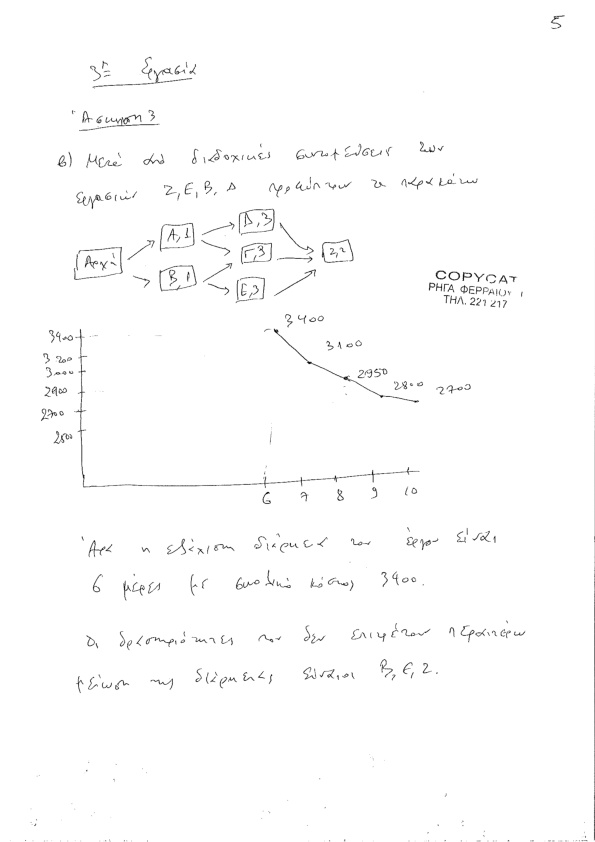 5
3η Εργασία
Άσκηση 3
β) Μετά από διαδοχικές συντμήσεις των
εργασιών Ζ, Ε, Β, Δ προκύπτουν τα παρακάτω
Δ, 3
Α, 1
Αρχή
Γ, 3
Ζ, 2
Β, 1
Ε, 3
COPYCAT
ΡΗΓΑ ΦΕΡΡΑΙΟΥ
ΤΗΛ. 221 217
3400
3400
3100
3200
3000
2950
2900
2800
2700
2700
6 7 8 9 10
Άρα η ελάχιστη διάρκεια του έργου είναι
6 μέρες με συνολικό κόστος 3400.
Οι δραστηριότητες που δεν επιτρέπουν περαιτέρω
μείωση της διάρκειας είναι οι Β, Ε, Ζ.